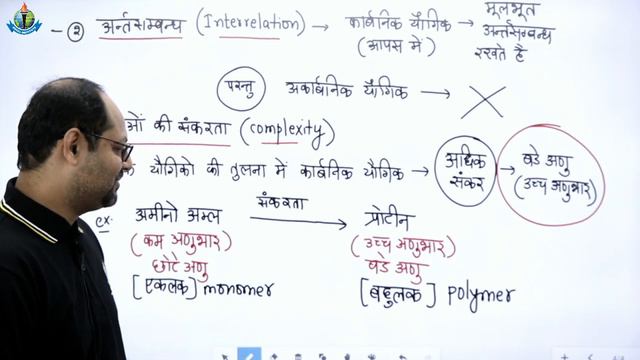 - ② अर्न्तसम्बन्ध (Interrelation) → कार्बनिक यौगिक (आपस में) → मूलभूत अर्न्तसम्बन्ध रखते है
परन्तु अकार्बनिक यौगिक → ✗
ओं की संकरता (complexity)
यौगिको की तुलना में कार्बनिक यौगिक → अधिक संकर → बडे अणु (उच्च अणुभार)
ex. अमीनो अम्ल संकरता → प्रोटीन
(कम अणुभार) (उच्च अणुभार)
छोटे अणु बडे अणु
[एकलक] monomer [बहुलक] polymer